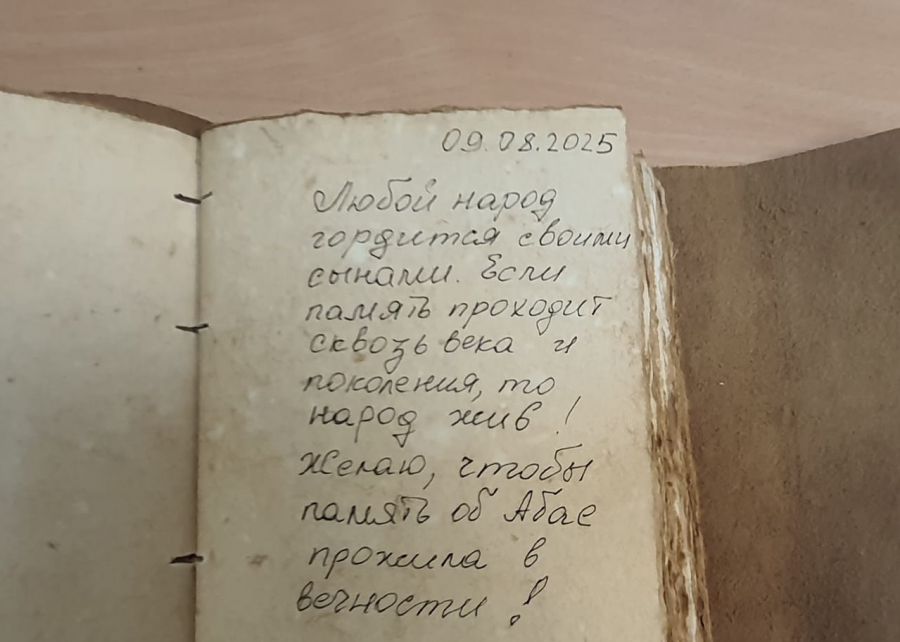 09.08.2025
Любой народ
гордится своими
сынами. Если
память проходит
сквозь века и
поколения, то
народ жив!
Желаю, чтобы
память об Абае
прожила в
вечности!